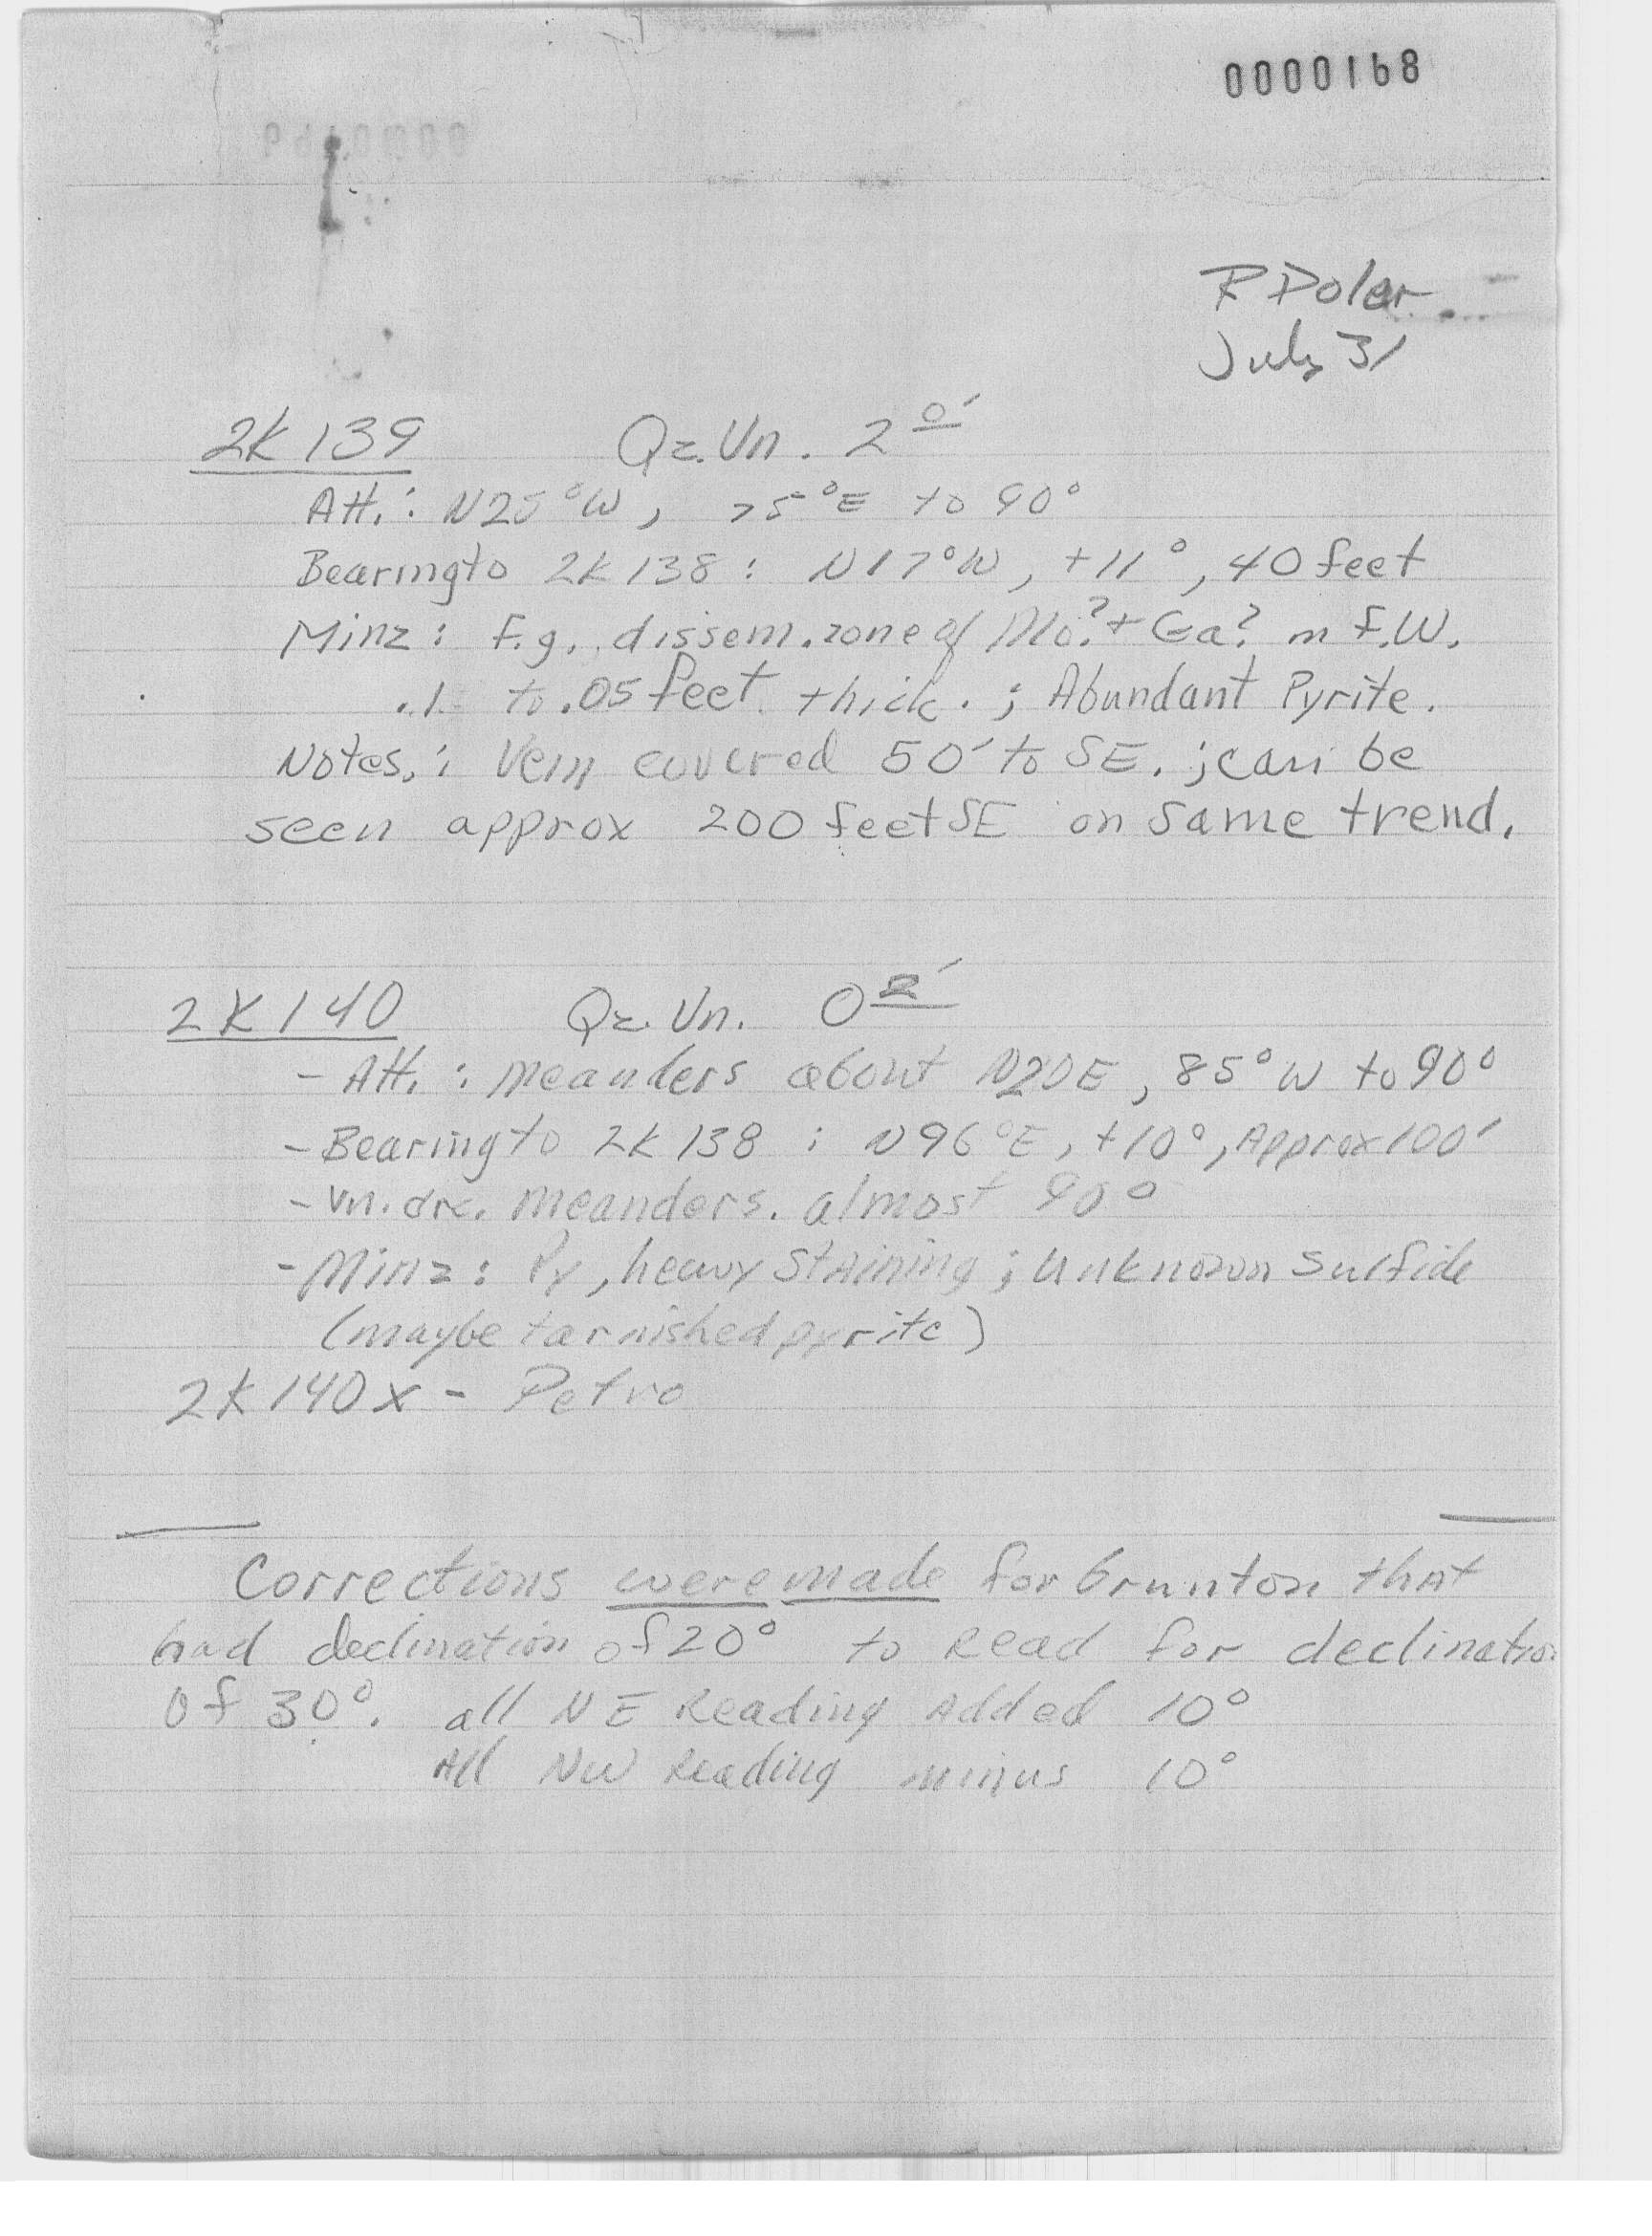 0000168
R Doler
July 31
2K 139 Qz. Vn. 2 0′
Att. : N25°W, 75°E to 90°
Bearing to 2K 138 : N17°W, +11°, 40 feet
Minz : F.g. dissem. zone of Mo? + Ga? in F.W.
.1 to .05 feet thick. ; Abundant Pyrite.
Notes. : Vein covered 50′ to SE. ; can be
seen approx 200 feet SE on same trend.
2K 140 Qz. Vn. 0
- Att. : meanders about N20E, 85°W to 90°
- Bearing to 2K 138 : N96°E, +10°, Approx 100′
- Vn. meanders. almost 90°
- Minz : Py, heavy staining ; unknown sulfide
(maybe tarnished pyrite)
2K 140x - Petro
Corrections were made for brunton that
had declination of 20° to Read for declinatio
of 30°. all NE Reading Added 10°
All NW Reading minus 10°